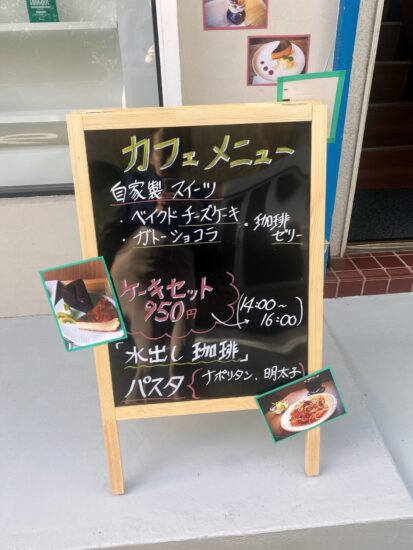 カフェメニュー
自家製 スイーツ
・ベイクドチーズケーキ
・ガトーショコラ
・珈琲ゼリー
ケーキセット
950円
(14:00~16:00)
「水出し 珈琲」
パスタ(ナポリタン、明太子